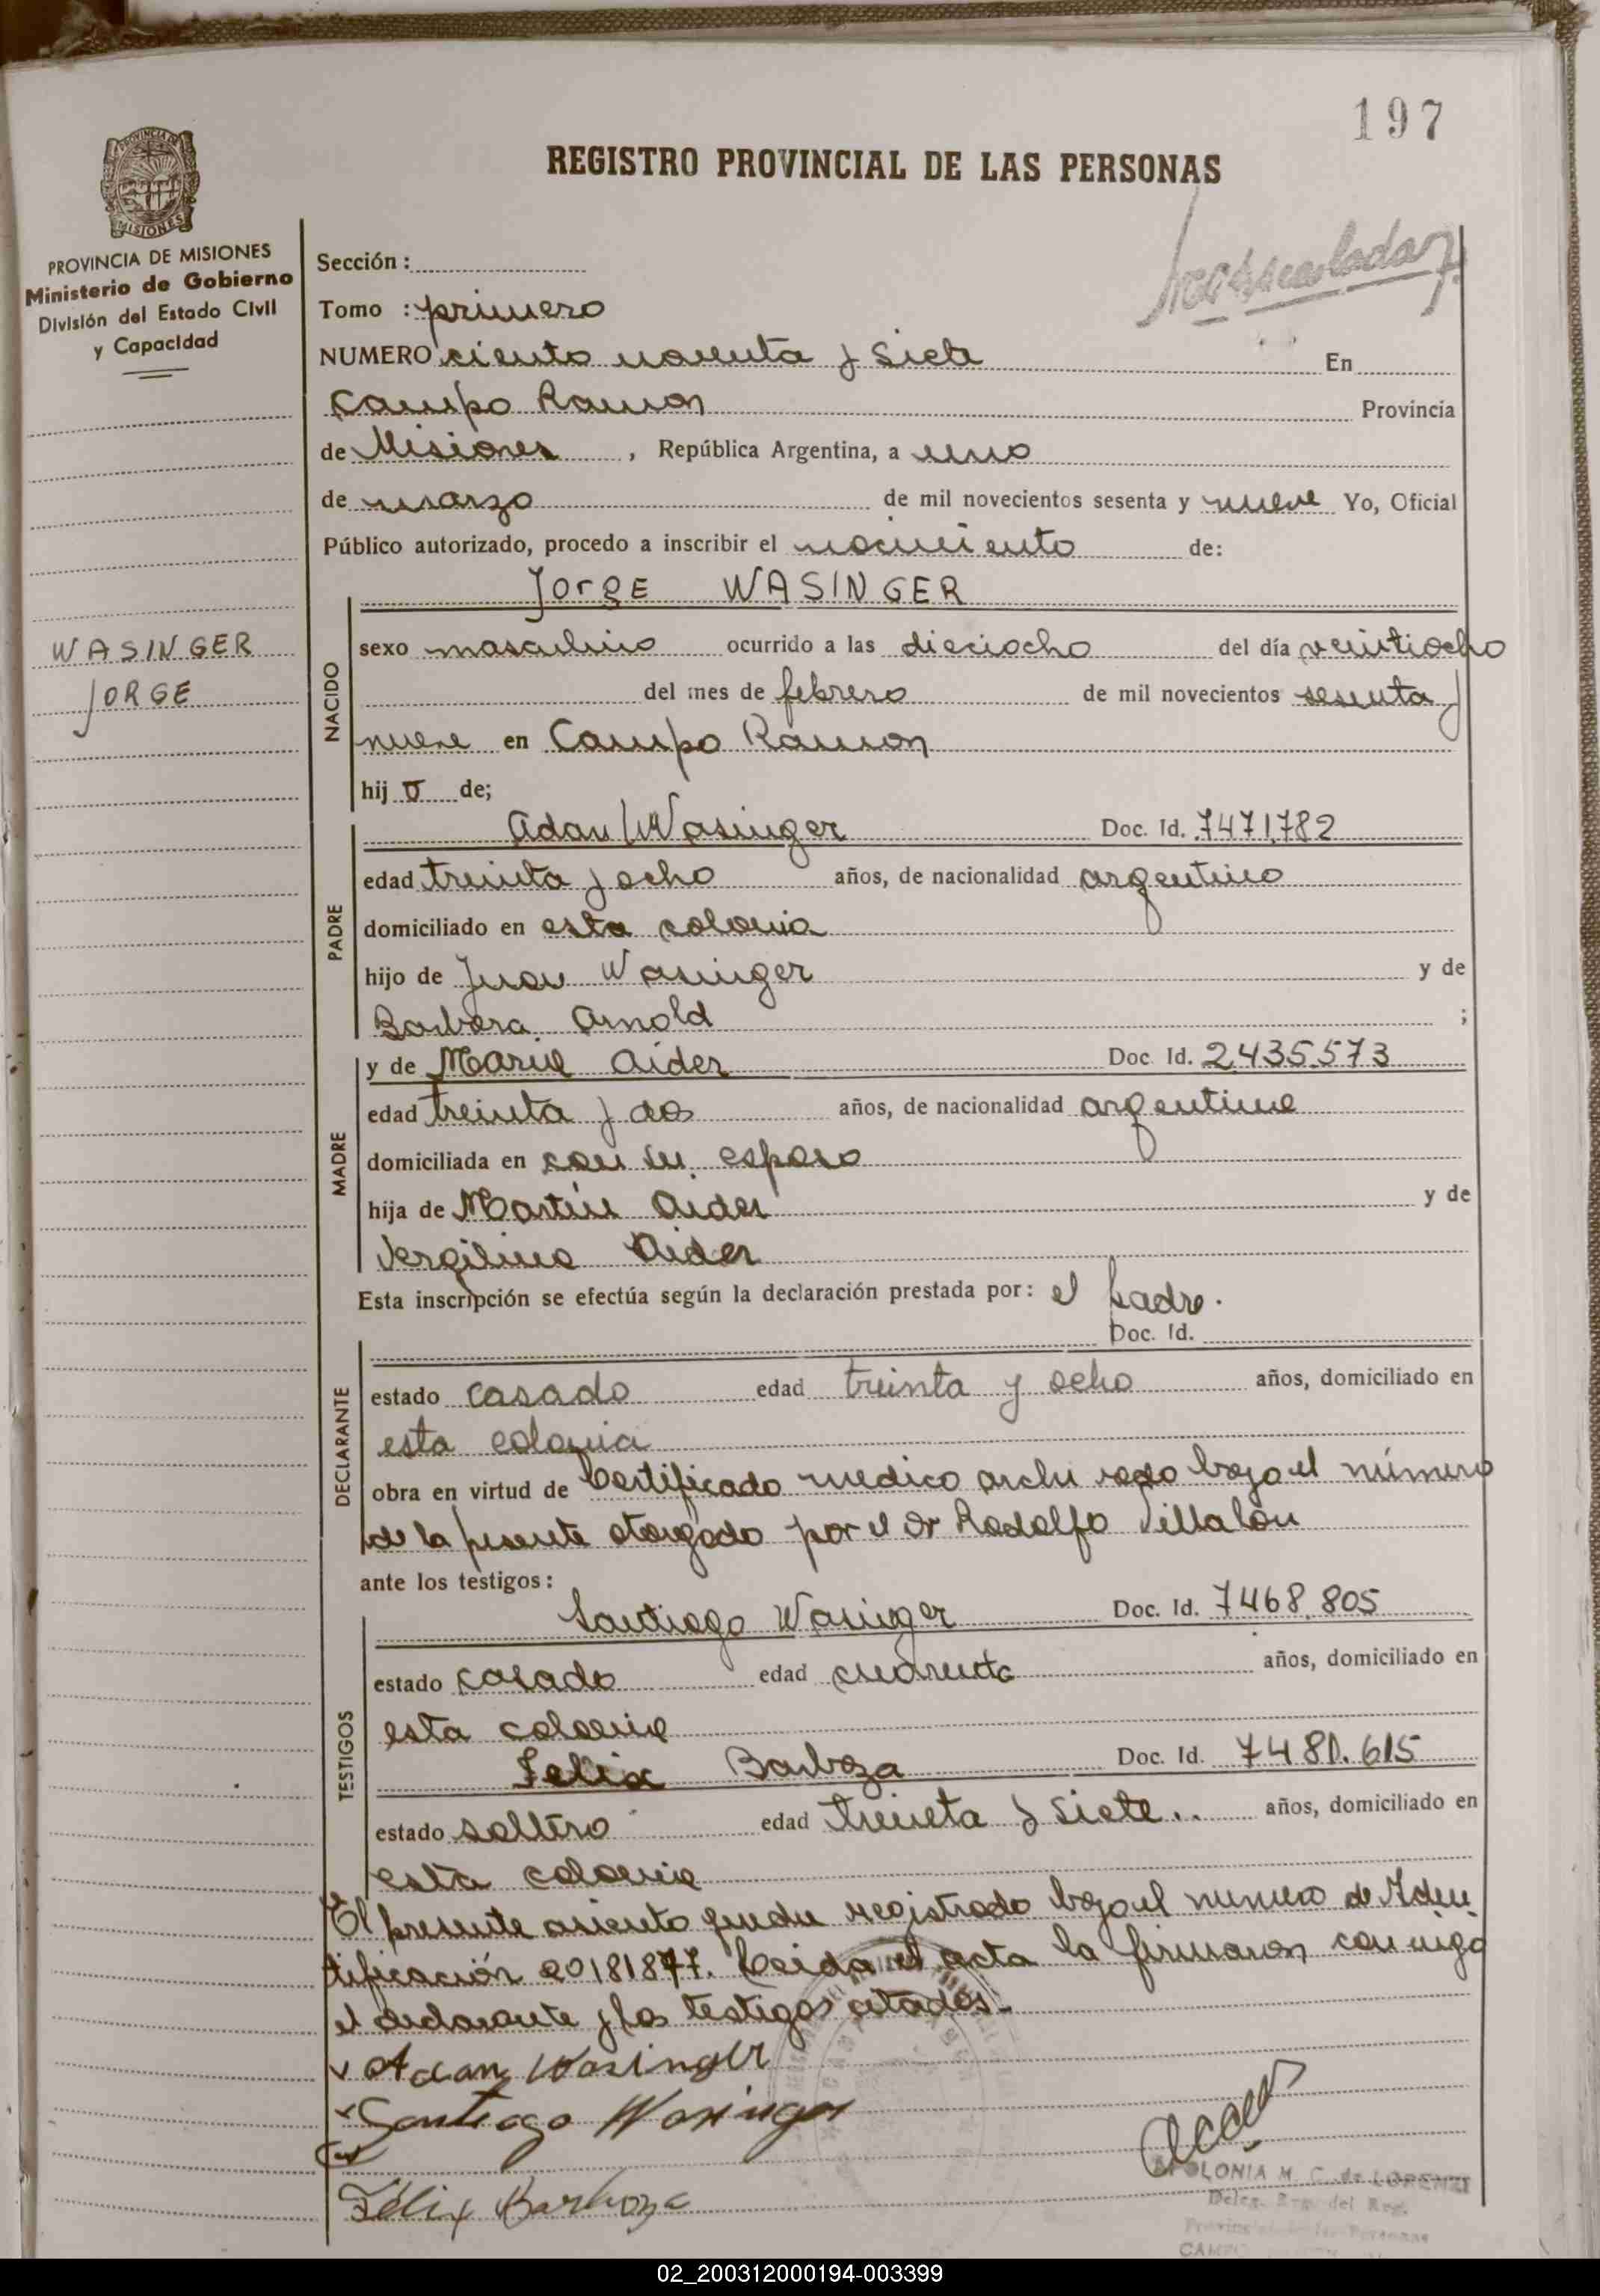 197
REGISTRO PROVINCIAL DE LAS PERSONAS
PROVINCIA DE MISIONES
MISIONES
PROVINCIA DE MISIONES
Ministerio de Gobierno
División del Estado Civil
y Capacidad
Sección :
Tomo : primero
NUMERO ciento noventa y siete En
Campo Ramon Provincia
de Misiones , República Argentina, a uno
de marzo de mil novecientos sesenta y nueve Yo, Oficial
Público autorizado, procedo a inscribir el nacimiento de:
Jorge WASINGER
WASINGER
JORGE
NACIDO
sexo masculino ocurrido a las dieciocho del día veintiocho
del mes de febrero de mil novecientos sesenta y
nueve en Campo Ramon
hij o de;
PADRE
Adan Wasinger Doc. Id. 7471782
edad treinta y ocho años, de nacionalidad argentino
domiciliado en esta colonia
hijo de Juan Wasinger y de
Barbara Arnold ;
MADRE
y de Maria Aider Doc. Id. 2.435.573
edad treinta y dos años, de nacionalidad argentina
domiciliada en con su esposo
hija de Martin Aider y de
Vergilina Aider
Esta inscripción se efectúa según la declaración prestada por: el padre.
Doc. Id.
DECLARANTE
estado casado edad treinta y ocho años, domiciliado en
esta colonia
obra en virtud de Certificado medico archivado bajo el número
de la presente otorgado por el Dr Rodolfo Villalón
ante los testigos:
TESTIGOS
Santiago Wasinger Doc. Id. 7468.805
estado casado edad cuarenta años, domiciliado en
esta colonia
Felix Barboza Doc. Id. 7481.615
estado soltero edad treinta y siete.. años, domiciliado en
esta colonia
El presente asiento queda registrado bajo el numero de Iden
tificación 20181877. Leida el acta la firmaron conmigo
el declarante y los testigos citados.-
Adan Wasinger
Santiago Wasinger
Félix Barboza
APOLONIA M. C. de LORENZI
Deleg. del Reg.
Provincial de las Personas
02_200312000194-003399